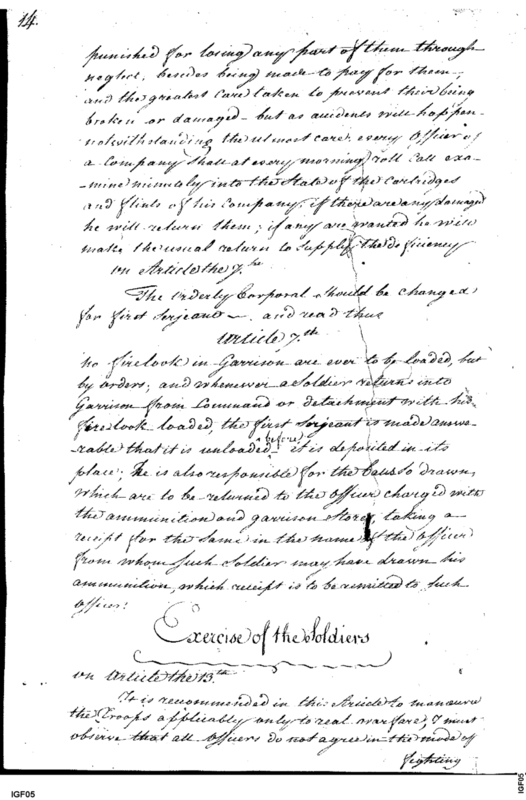 14.
punished for losing any part of them through
neglect, besides being made to pay for them,
and the greatest care taken to prevent their being
broken or damaged - but as accidents will happen
notwithstanding the utmost care, every Officer of
a Company shall at every morning roll call exa-
-mine minutely into the State of the Cartridges
and flints of his Company, if there are any damaged
he will return them; if any are wanted he will
make the usual return to supply the deficiency
on Article the 7.th
The Orderly Corporal should be changed
for first Serjeant -, and read thus
Article 7.th
No firelock in Garrison are ever to be loaded, but
by orders; and whenever a Soldier returns into
Garrison from Command or detachment with his
firelock loaded, the first Serjeant is made answe-
-rable that it is unloaded before it is deposited in its
place; he is also responsible for the Balls so drawn,
which are to be returned to the Officer charged with
the ammunition and garrison Store, taking a
receipt for the same in the name of the Officer
from whom such Soldier may have drawn his
ammunition, which receipt is to be remitted to such
Officer:
Exercise of the Soldiers
on Article the 13.th
It is recommended in this Article to manœuvre
the Troops applicably only to real warfare, I must
observe that all Officers do not agree in the mode of
fighting
IGF05
IGF05